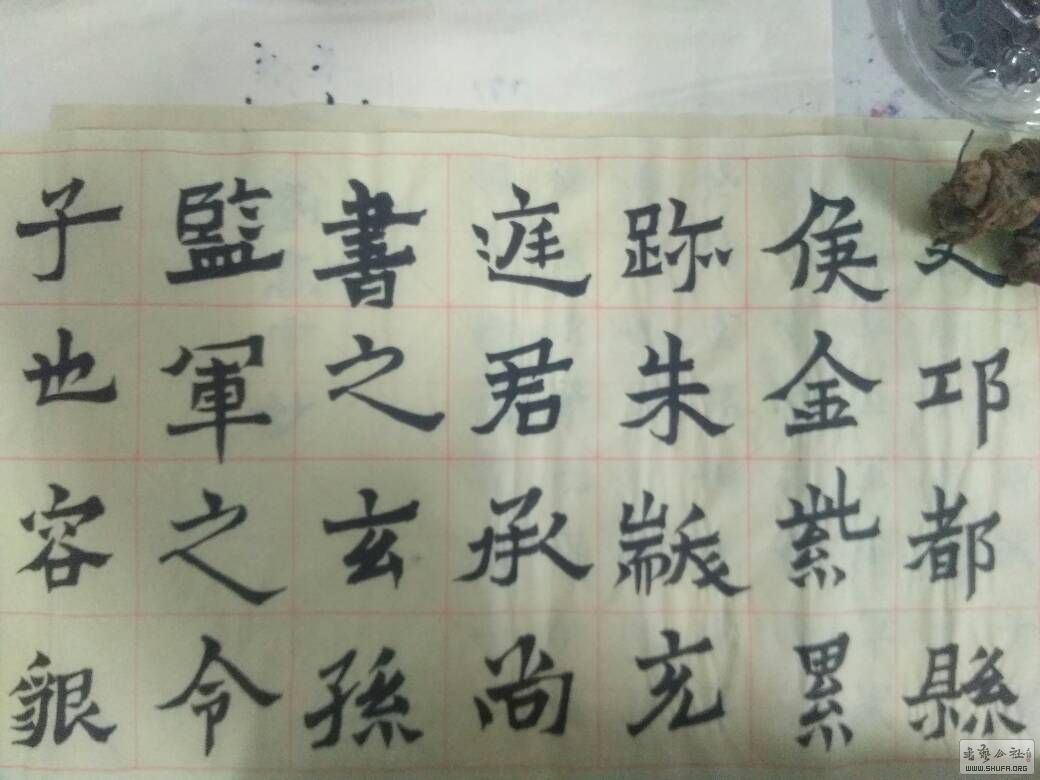 邛都縣
侯金紫累
跡朱黻充
庭君承尚
書之玄孫
監軍之令
子也容貇
書藝公社
WWW.SHUFA.ORG